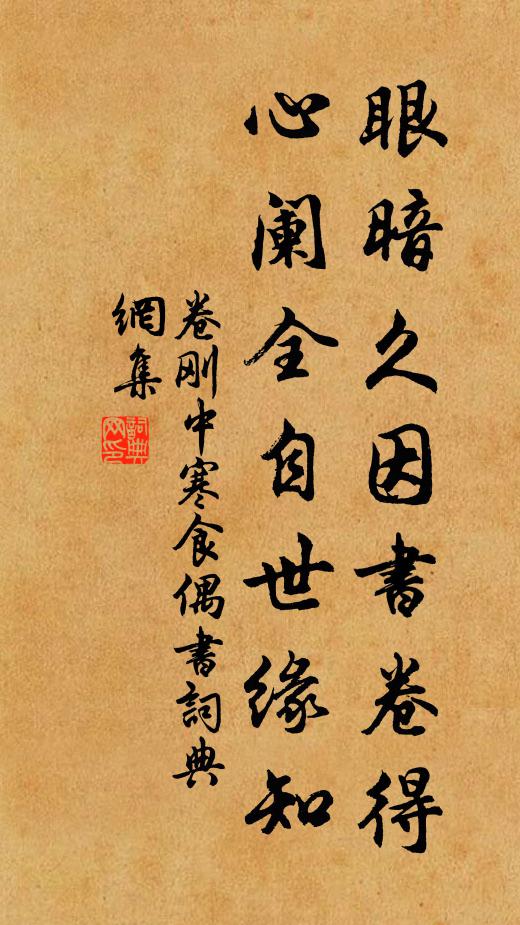 眼暗久因書卷得
心阑全自世緣知
卷刚中寒食偶書詞典
網集
詞典
网印